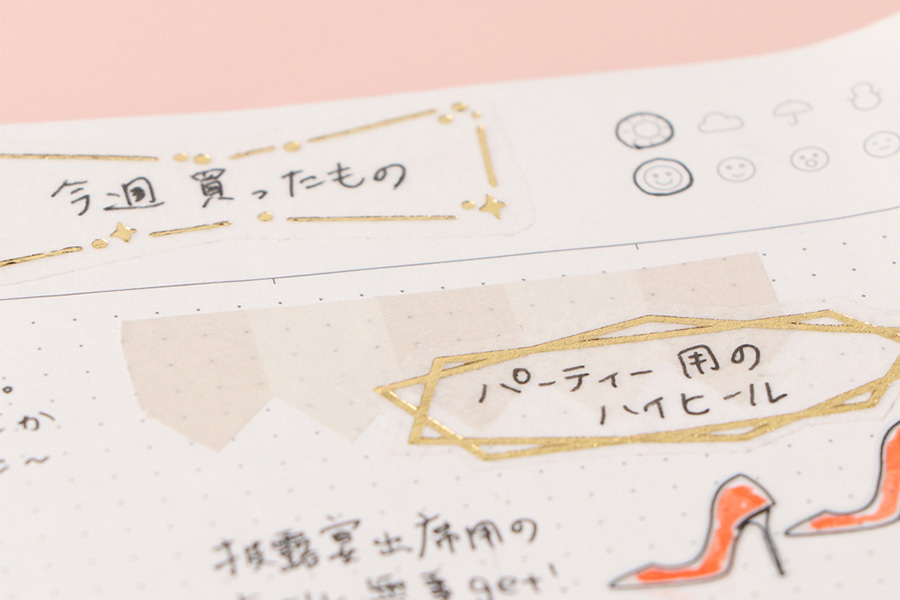 今週 買ったもの
パーティー用の
ハイヒール
か
〜
披露宴出席用の
無事get!